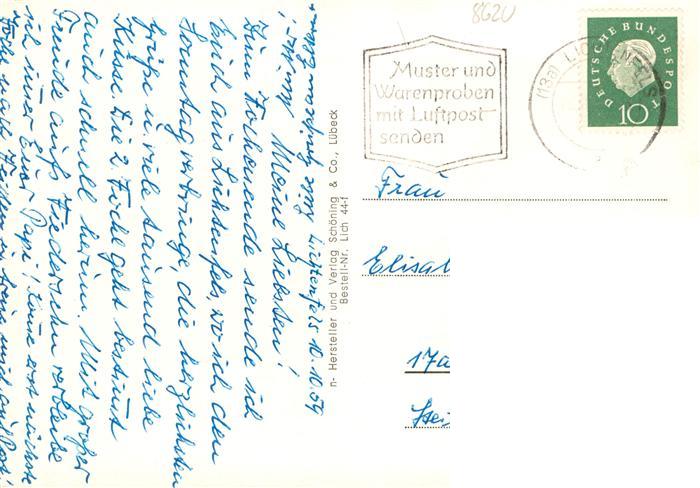 8620
Muster und
Warenproben
mit Luftpost
senden
(13a) LICHTENFELS
DEUTSCHE BUNDESPOST
10
Frau
Elisab
17a
Lichtenfels 10.10.59
Meine Liebsten!
Zum Wochenende sende ich
Euch aus Lichtenfels, wo ich den
Sonntag verbringe die herzlichsten
Grüße u. viele tausend liebe
Küsse. Die 2. Woche geht bestimmt
auch schnell herum. Mit großer
Freude aufs Wiedersehn verbleibe
ich immer Euer Papi!
n- Hersteller und Verlag Schöning & Co., Lübeck
Bestell-Nr. Lich 44-f